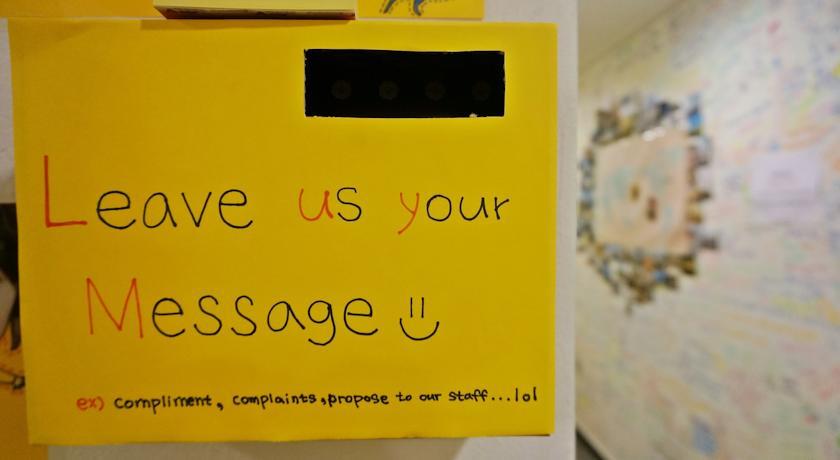 Leave us your
Message
ex) compliment, complaints, propose to our staff...lol